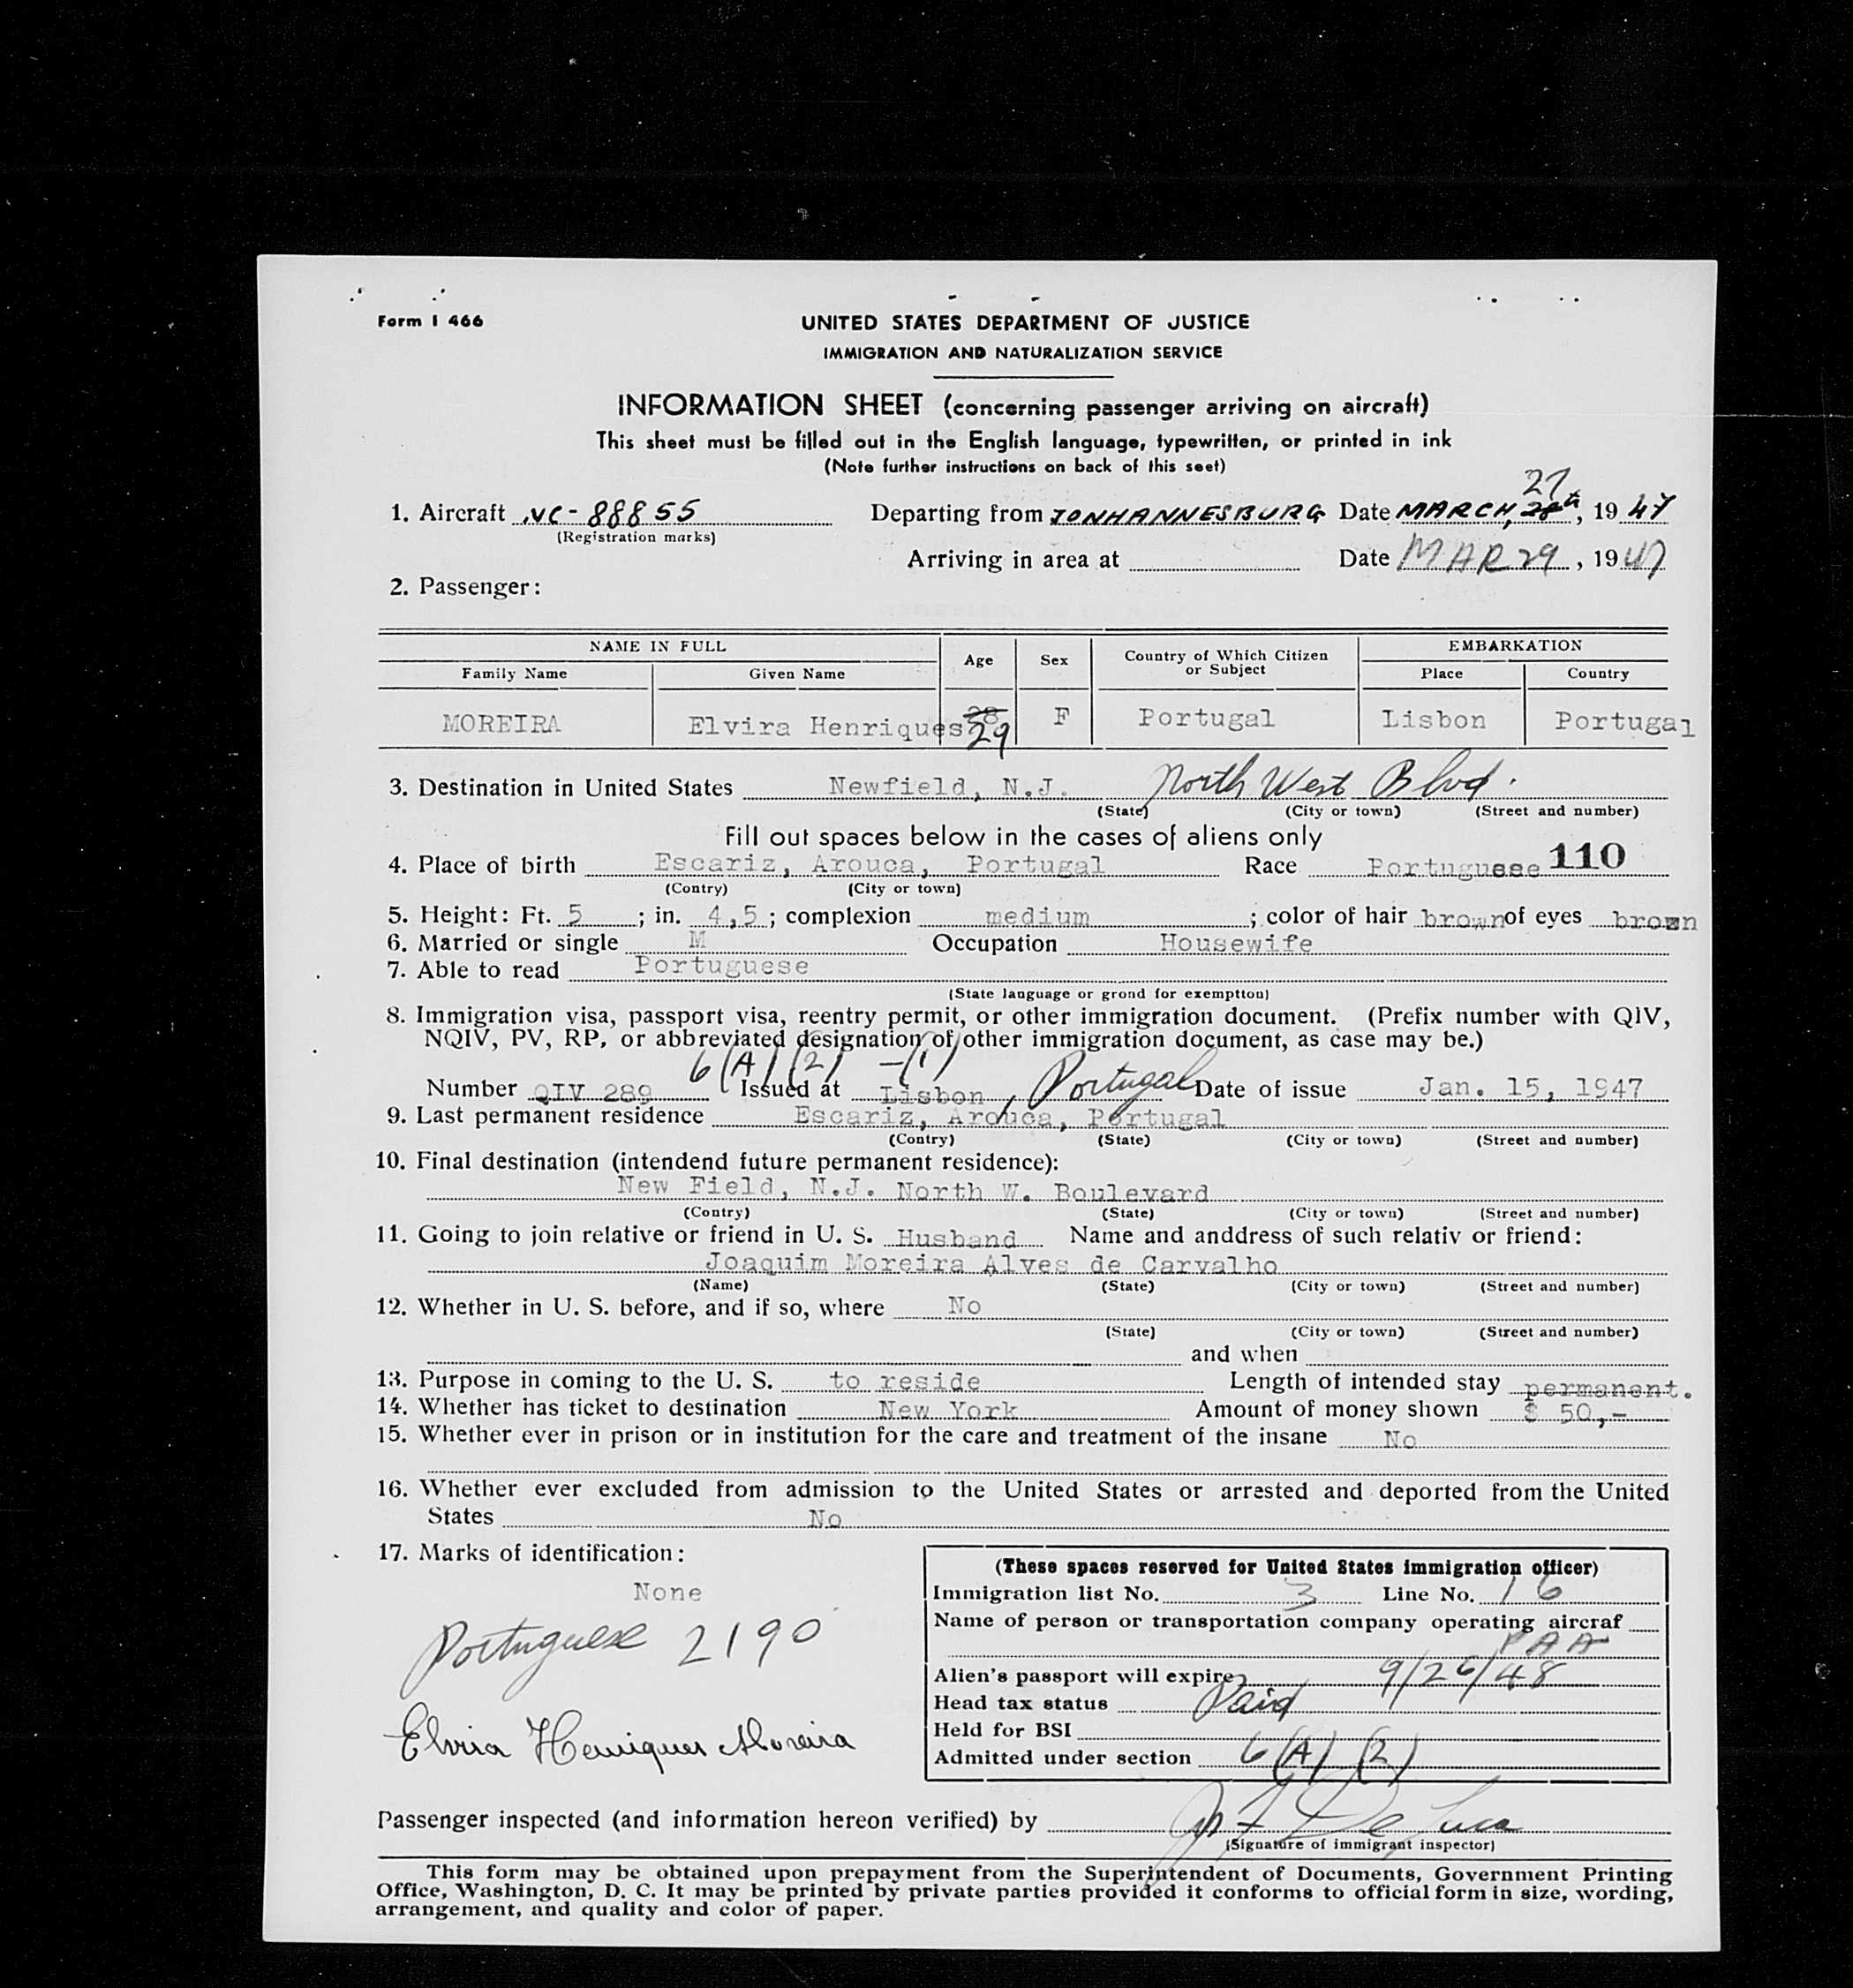 Form I 466
UNITED STATES DEPARTMENT OF JUSTICE
IMMIGRATION AND NATURALIZATION SERVICE
INFORMATION SHEET (concerning passenger arriving on aircraft)
This sheet must be filled out in the English language, typewritten, or printed in ink
(Note further instructions on back of this seet)
27
1. Aircraft NC-88855 Departing from JONHANNESBURG Date MARCH, 28th, 1947
(Registration marks)
Arriving in area at Date MAR 29, 1947
2. Passenger:
NAME IN FULL Age Sex Country of Which Citizen or Subject EMBARKATION
Family Name Given Name Place Country
MOREIRA Elvira Henriques 28 F Portugal Lisbon Portugal
29
3. Destination in United States Newfield, N.J. North West Blvd.
(State) (City or town) (Street and number)
Fill out spaces below in the cases of aliens only
4. Place of birth Escariz, Arouca, Portugal Race Portuguese 110
(Contry) (City or town)
5. Height: Ft. 5 ; in. 4,5 ; complexion medium ; color of hair brown of eyes brown
6. Married or single M Occupation Housewife
7. Able to read Portuguese
(State language or grond for exemption)
8. Immigration visa, passport visa, reentry permit, or other immigration document. (Prefix number with QIV,
NQIV, PV, RP, or abbreviated designation of other immigration document, as case may be.)
6(A)(2) -(1)
Number QIV 289 Issued at Lisbon, Portugal Date of issue Jan. 15, 1947
9. Last permanent residence Escariz, Arouca, Portugal
(Contry) (State) (City or town) (Street and number)
10. Final destination (intendend future permanent residence):
New Field, N.J. North W. Boulevard
(Contry) (State) (City or town) (Street and number)
11. Going to join relative or friend in U. S. Husband Name and anddress of such relativ or friend:
Joaquim Moreira Alves de Carvalho
(Name) (State) (City or town) (Street and number)
12. Whether in U. S. before, and if so, where No
(State) (City or town) (Street and number)
and when
13. Purpose in coming to the U. S. to reside Length of intended stay permanent.
14. Whether has ticket to destination New York Amount of money shown $ 50,-
15. Whether ever in prison or in institution for the care and treatment of the insane No
16. Whether ever excluded from admission to the United States or arrested and deported from the United
States No
17. Marks of identification:
None
Portuguese 2190
Elvira Henriques Moreira
(These spaces reserved for United States immigration officer)
Immigration list No. 3 Line No. 16
Name of person or transportation company operating aircraf
PAA
Alien's passport will expire 9/26/48
Head tax status Paid
Held for BSI
Admitted under section 6(A)(2)
Passenger inspected (and information hereon verified) by De Luca
(Signature of immigrant inspector)
This form may be obtained upon prepayment from the Superintendent of Documents, Government Printing
Office, Washington, D. C. It may be printed by private parties provided it conforms to official form in size, wording,
arrangement, and quality and color of paper.